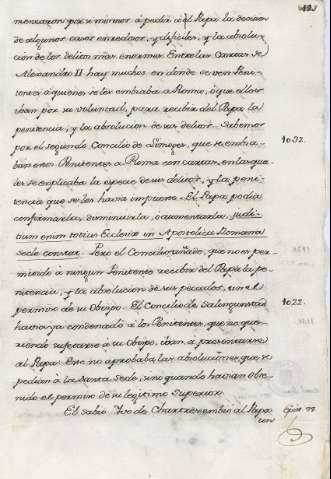 menzaron por sí mismos á pedir á el Papa la decision
de algunos casos enredosos, y dificiles, y la absolu-
cion de los delitos mas enormes. Entre las Cartas de
Alexandro II hay muchas, en donde se ven Peni-
tentes á quienes se les embiaba á Roma, ó que ellos
iban por su voluntad, para recibir del Papa la
penitencia, y la absolucion de sus delitos. Sabemos
por el segundo Concilio de Limoges, que se embia-
ban estos Penitentes á Roma con cartas, en las qua-
les se explicaba la especie de sus delitos, y la peni-
tencia que se les havia impuesto. El Papa podia
confirmarla, disminuirla, ó aumentarla: judi-
tium enim totius Ecclesiæ in Apostolica Romana
sede constat. Pero el Concilio añade, que no es per-
mitido á ningun Penitente recibir del Papa la pe-
nitencia, y la absolucion de sus pecados, sin el
permiso de su Obispo. El Concilio de Salengunstad
havia ya condenado á los Penitentes, que no que-
riendo sugetarse á su Obispo, iban a presentarse
al Papa. Este no aprobaba las absoluciones que se
pedian á la Santa Sede, sino quando havian obte-
nido el permiso de su legitimo Superior.
El sabio Ivo de Chartres embió al Papa
con
1032.
1022.